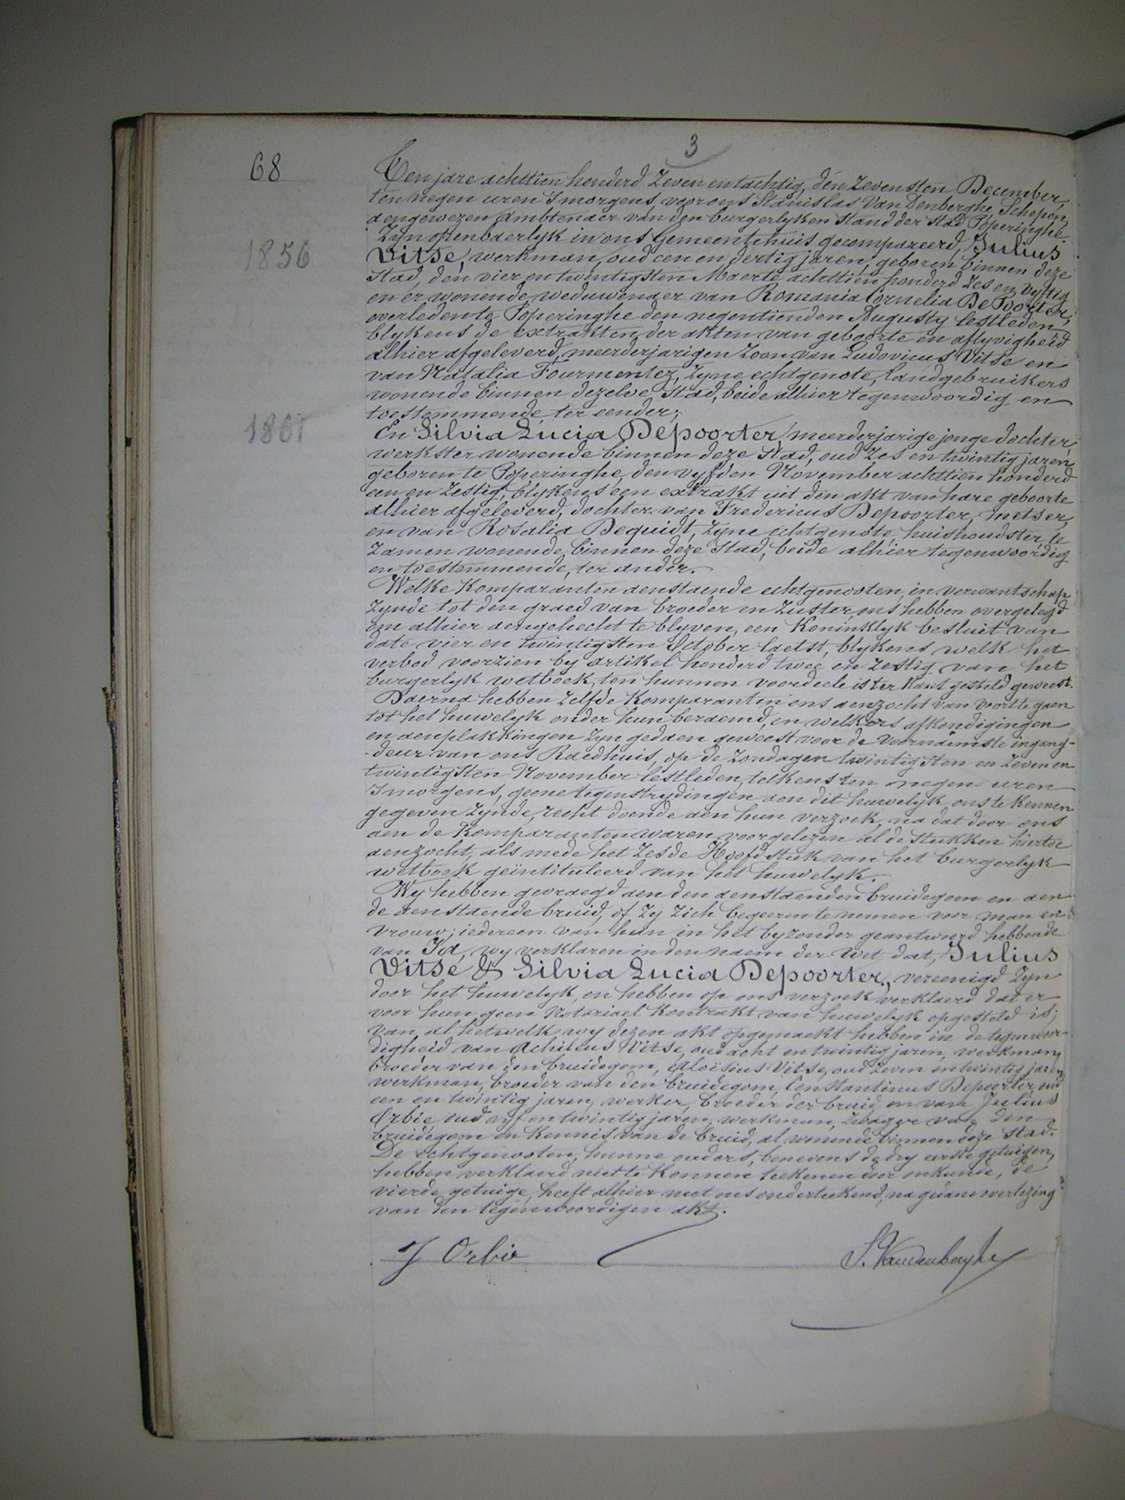 3
68
Ten jare achttien honderd zeven en tachtig, den zevensten December,
ten negen uren 's morgens, voor ons Stanislas Van Denberghe, Schepen,
aengewezen Ambtenaer van den burgerlyken stand der stad Poperinghe
1856
Zyn openbaerlyk in ons Gemeentehuis gecompareerd, Julius
Vitse, werkman, oud een en dertig jaren, geboren binnen deze
stad, den vier en twintigsten Maerte achttien honderd zes en vyftig
en er wonende, weduwenaer van Romania Cornelia De Poorter,
overleden te Poperinghe den negentienden Augusty lestleden,
blykens de extrakten der akten van geboorte en aflyvigheid
alhier afgeleverd, meerderjarigen zoon van Ludovicus Vitse en
van Natalia Fourmentez, zyne echtgenote, landgebruikers
wonende binnen dezelve stad, beide alhier tegenwoordig en
toestemmende, ter eender;
1861
En Silvia Lucia Depoorter, meerderjarige jonge dochter,
werkster wonende binnen deze stad, oud zes en twintig jaren,
geboren te Poperinghe, den vyfden November achttien honderd
een en zestig, blykens een extrakt uit den akt van hare geboorte
alhier afgeleverd, dochter van Fredericus Depoorter, metser,
en van Rosalia Dequidt, zyne echtgenote, huishoudster, te
zamen wonende binnen deze stad, beide alhier tegenwoordig
en toestemmende, ter ander.
Welke Komparanten aenstaende echtgenoten, in verwantschap
zynde tot den graed van broeder en zuster, ons hebben overgelegd
om alhier aengehecht te blyven, een Koninklyk besluit van
date vier en twintigsten October laetst, blykens welk het
verbod voorzien by artikel honderd twee en zestig van het
burgerlyk wetboek, ten hunnen voordeele is ter kant gesteld geweest.
Daerna hebben zelfde Komparanten ons aenzocht van voort te gaen
tot het huwelyk onder hun beraemd, en welkers afkondigingen
en aenplakkingen zyn gedaen geweest voor de voornaemste ingang-
deur van ons Raedhuis, op de zondagen twintigsten en zeven en
twintigsten November lestleden, telkens ten negen uren
's morgens, geene tegenstrydingen aen dit huwelyk ons te kennen
gegeven zynde, recht doende aen hun verzoek, na dat door ons
aen de Komparanten waren voorgelezen al de stukken hiertoe
aenzocht, als mede het zesde Hoofdstuk van het burgerlyk
wetboek geïntituleerd van het huwelyk.
Wy hebben gevraegd aen den aenstaenden bruidegom en aen
de aenstaende bruid, of zy zich begeeren te nemen voor man en
vrouw; iedereen van hun in het byzonder geantwoord hebbende
van Ja, wy verklaren in den naem der Wet dat, Julius
Vitse & Silvia Lucia Depoorter, vereenigd zyn
door het huwelyk, en hebben op ons verzoek verklaerd dat er
voor hun geen Notariael Kontrakt van huwelyk opgesteld is;
van al hetwelk wy dezen akt opgemaekt hebben in de tegenwoor-
digheid van Achilles Vitse, oud acht en twintig jaren, werkman,
broeder van den bruidegom, Aloïsius Vitse, oud zeven en twintig jaren,
werkman, broeder van den bruidegom, Constantinus Depoorter, oud
een en twintig jaren, werker, broeder der bruid en van Julius
Orbie, oud vyf en twintig jaren, werkman, zwager van den
bruidegom en kennis van de bruid, al wonende binnen deze stad.
De echtgenooten, hunne ouders, benevens de dry eerste getuigen,
hebben verklaerd niet te konnen teekenen door onkunde, de
vierde getuige, heeft alhier met ons onderteekend, na gedane voorlezing
van den tegenwoordigen akt.
J Orbie
S. Vandenberghe